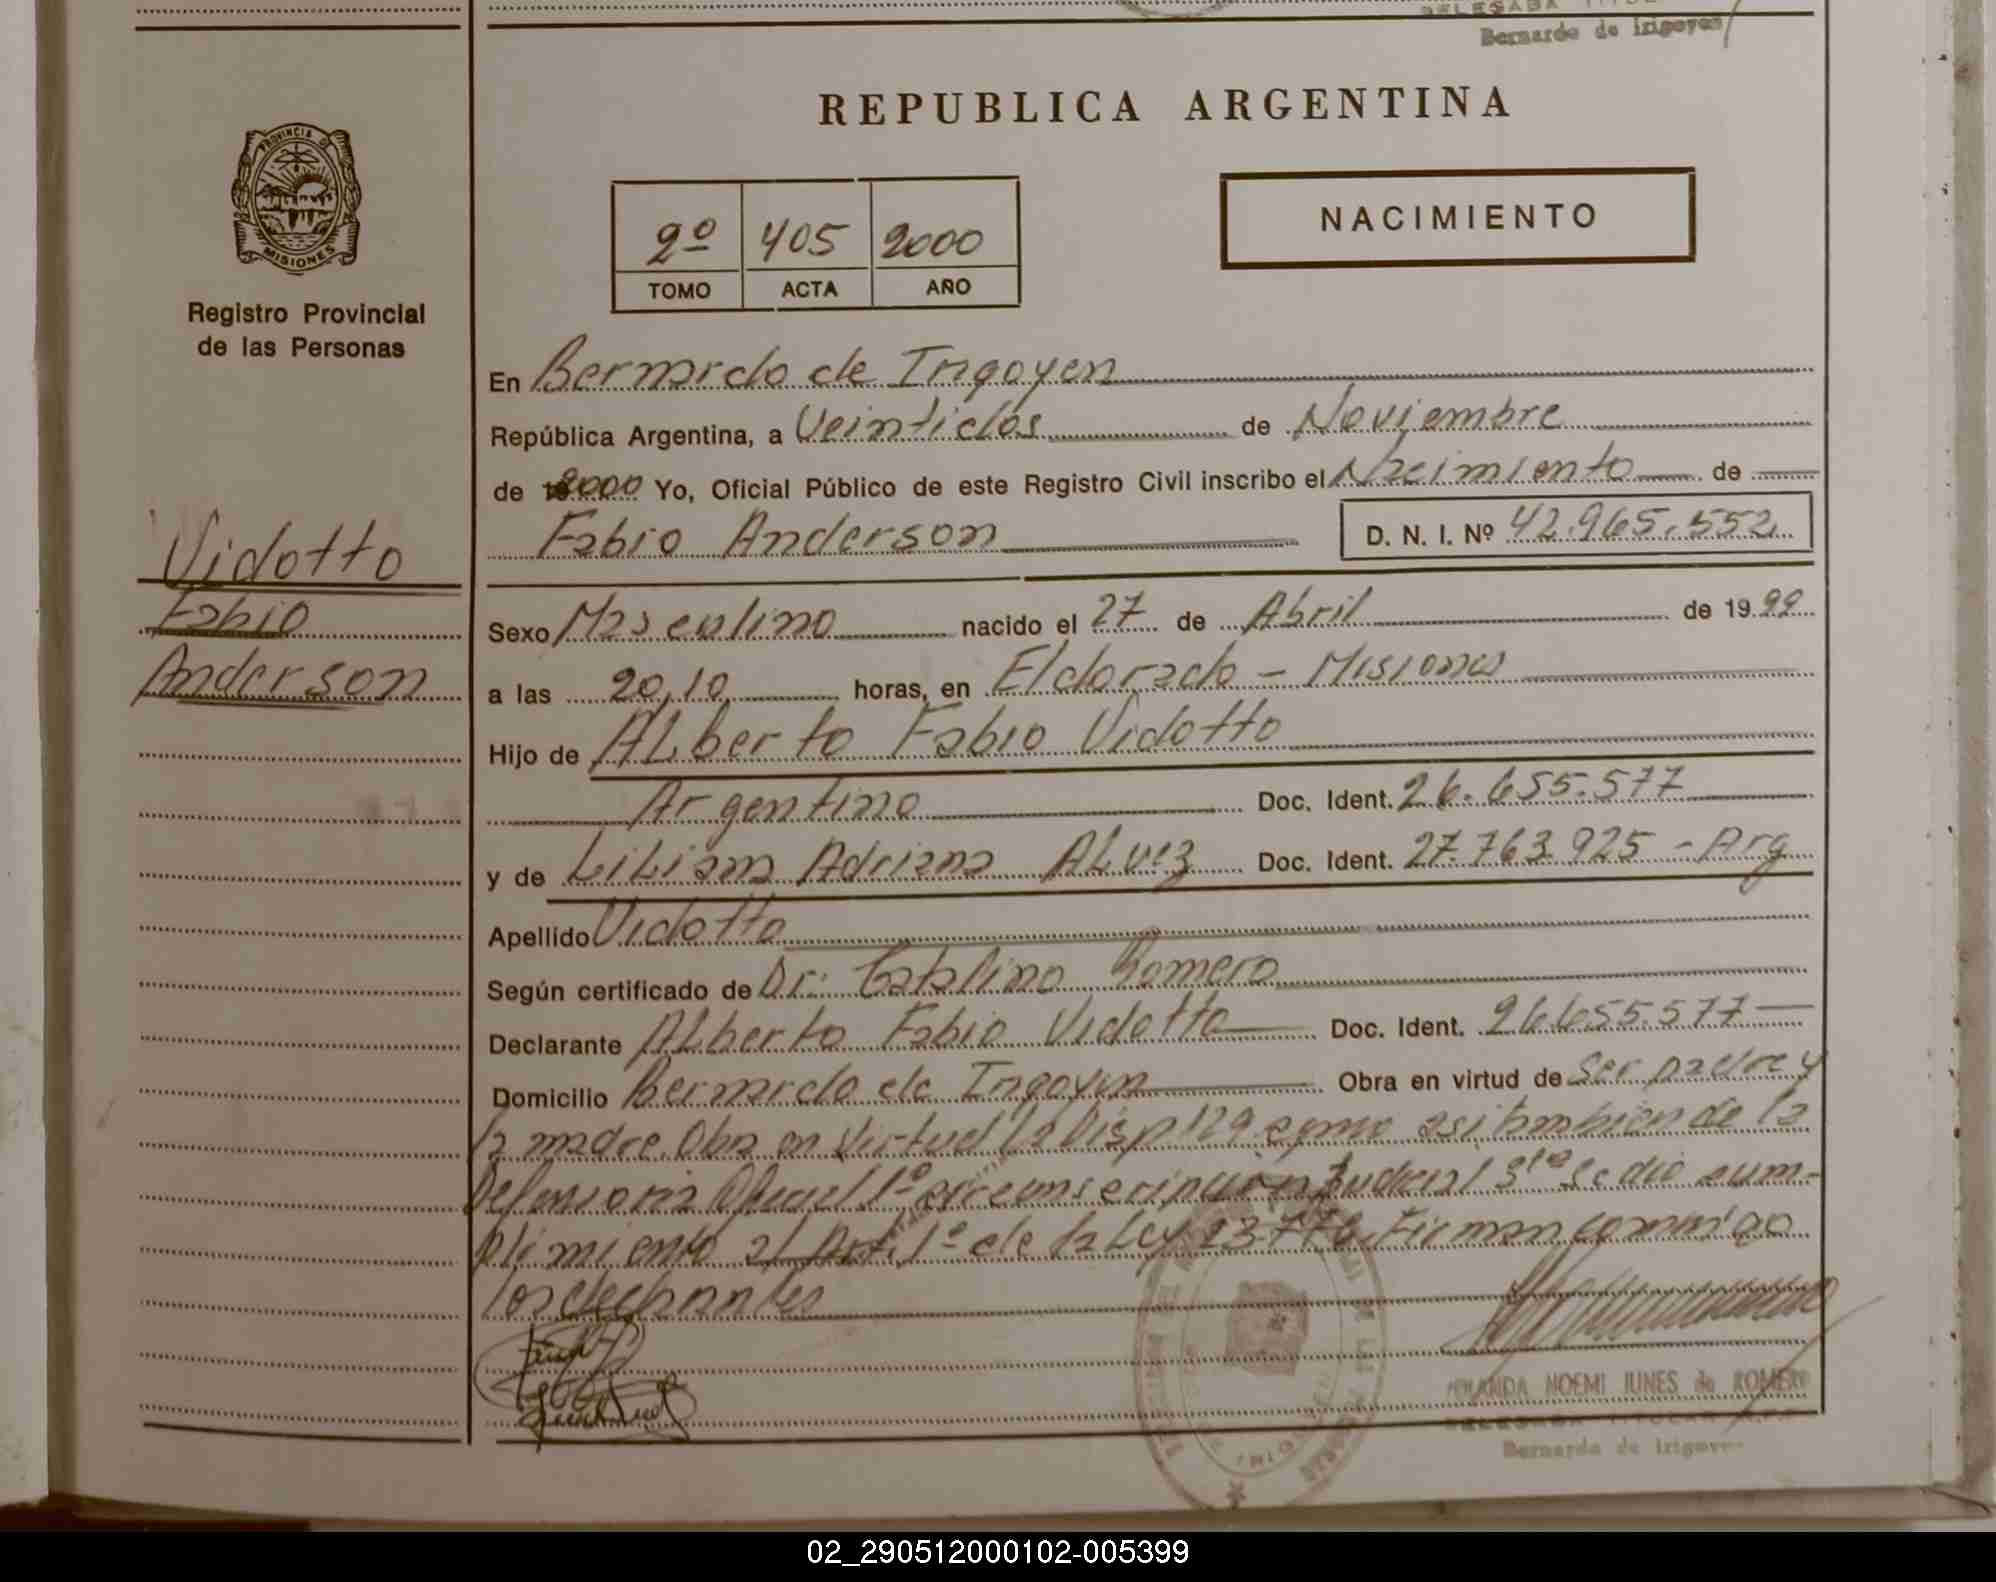 Bernardo de Irigoyen
REPUBLICA ARGENTINA
PROVINCIA DE
MISIONES
Registro Provincial
de las Personas
2º 405 2000
TOMO ACTA AÑO
NACIMIENTO
En Bernardo de Irigoyen
República Argentina, a Veintidos de Noviembre
de 2000 Yo, Oficial Público de este Registro Civil inscribo el Nacimiento de
Fabio Anderson D. N. I. Nº 42.965.552
Vidotto
Fabio
Anderson
Sexo Masculino nacido el 27 de Abril de 1999
a las 20,10 horas, en Eldorado - Misiones
Hijo de ALberto Fabio Vidotto
Argentino Doc. Ident. 26.655.577
y de LiLiana Adriana ALvez Doc. Ident. 27.763.925 - Arg
Apellido Vidotto
Según certificado de Dr: Catalino Romero
Declarante ALberto Fabio Vidotto Doc. Ident. 26.655.577
Domicilio Bernardo de Irigoyen Obra en virtud de Ser padre y
la madre. Obra en Virtud la Disp. 129 como asi tambien de la
Defensoria 1º circunscripcion Judicial Se dio cum-
plimiento al Art. 1º de la Ley 23.776. Firman conmigo
los declarantes
YOLANDA NOEMI JUNES de ROMERO
DELEGADA TITULAR
Bernardo de Irigoyen
02_290512000102-005399